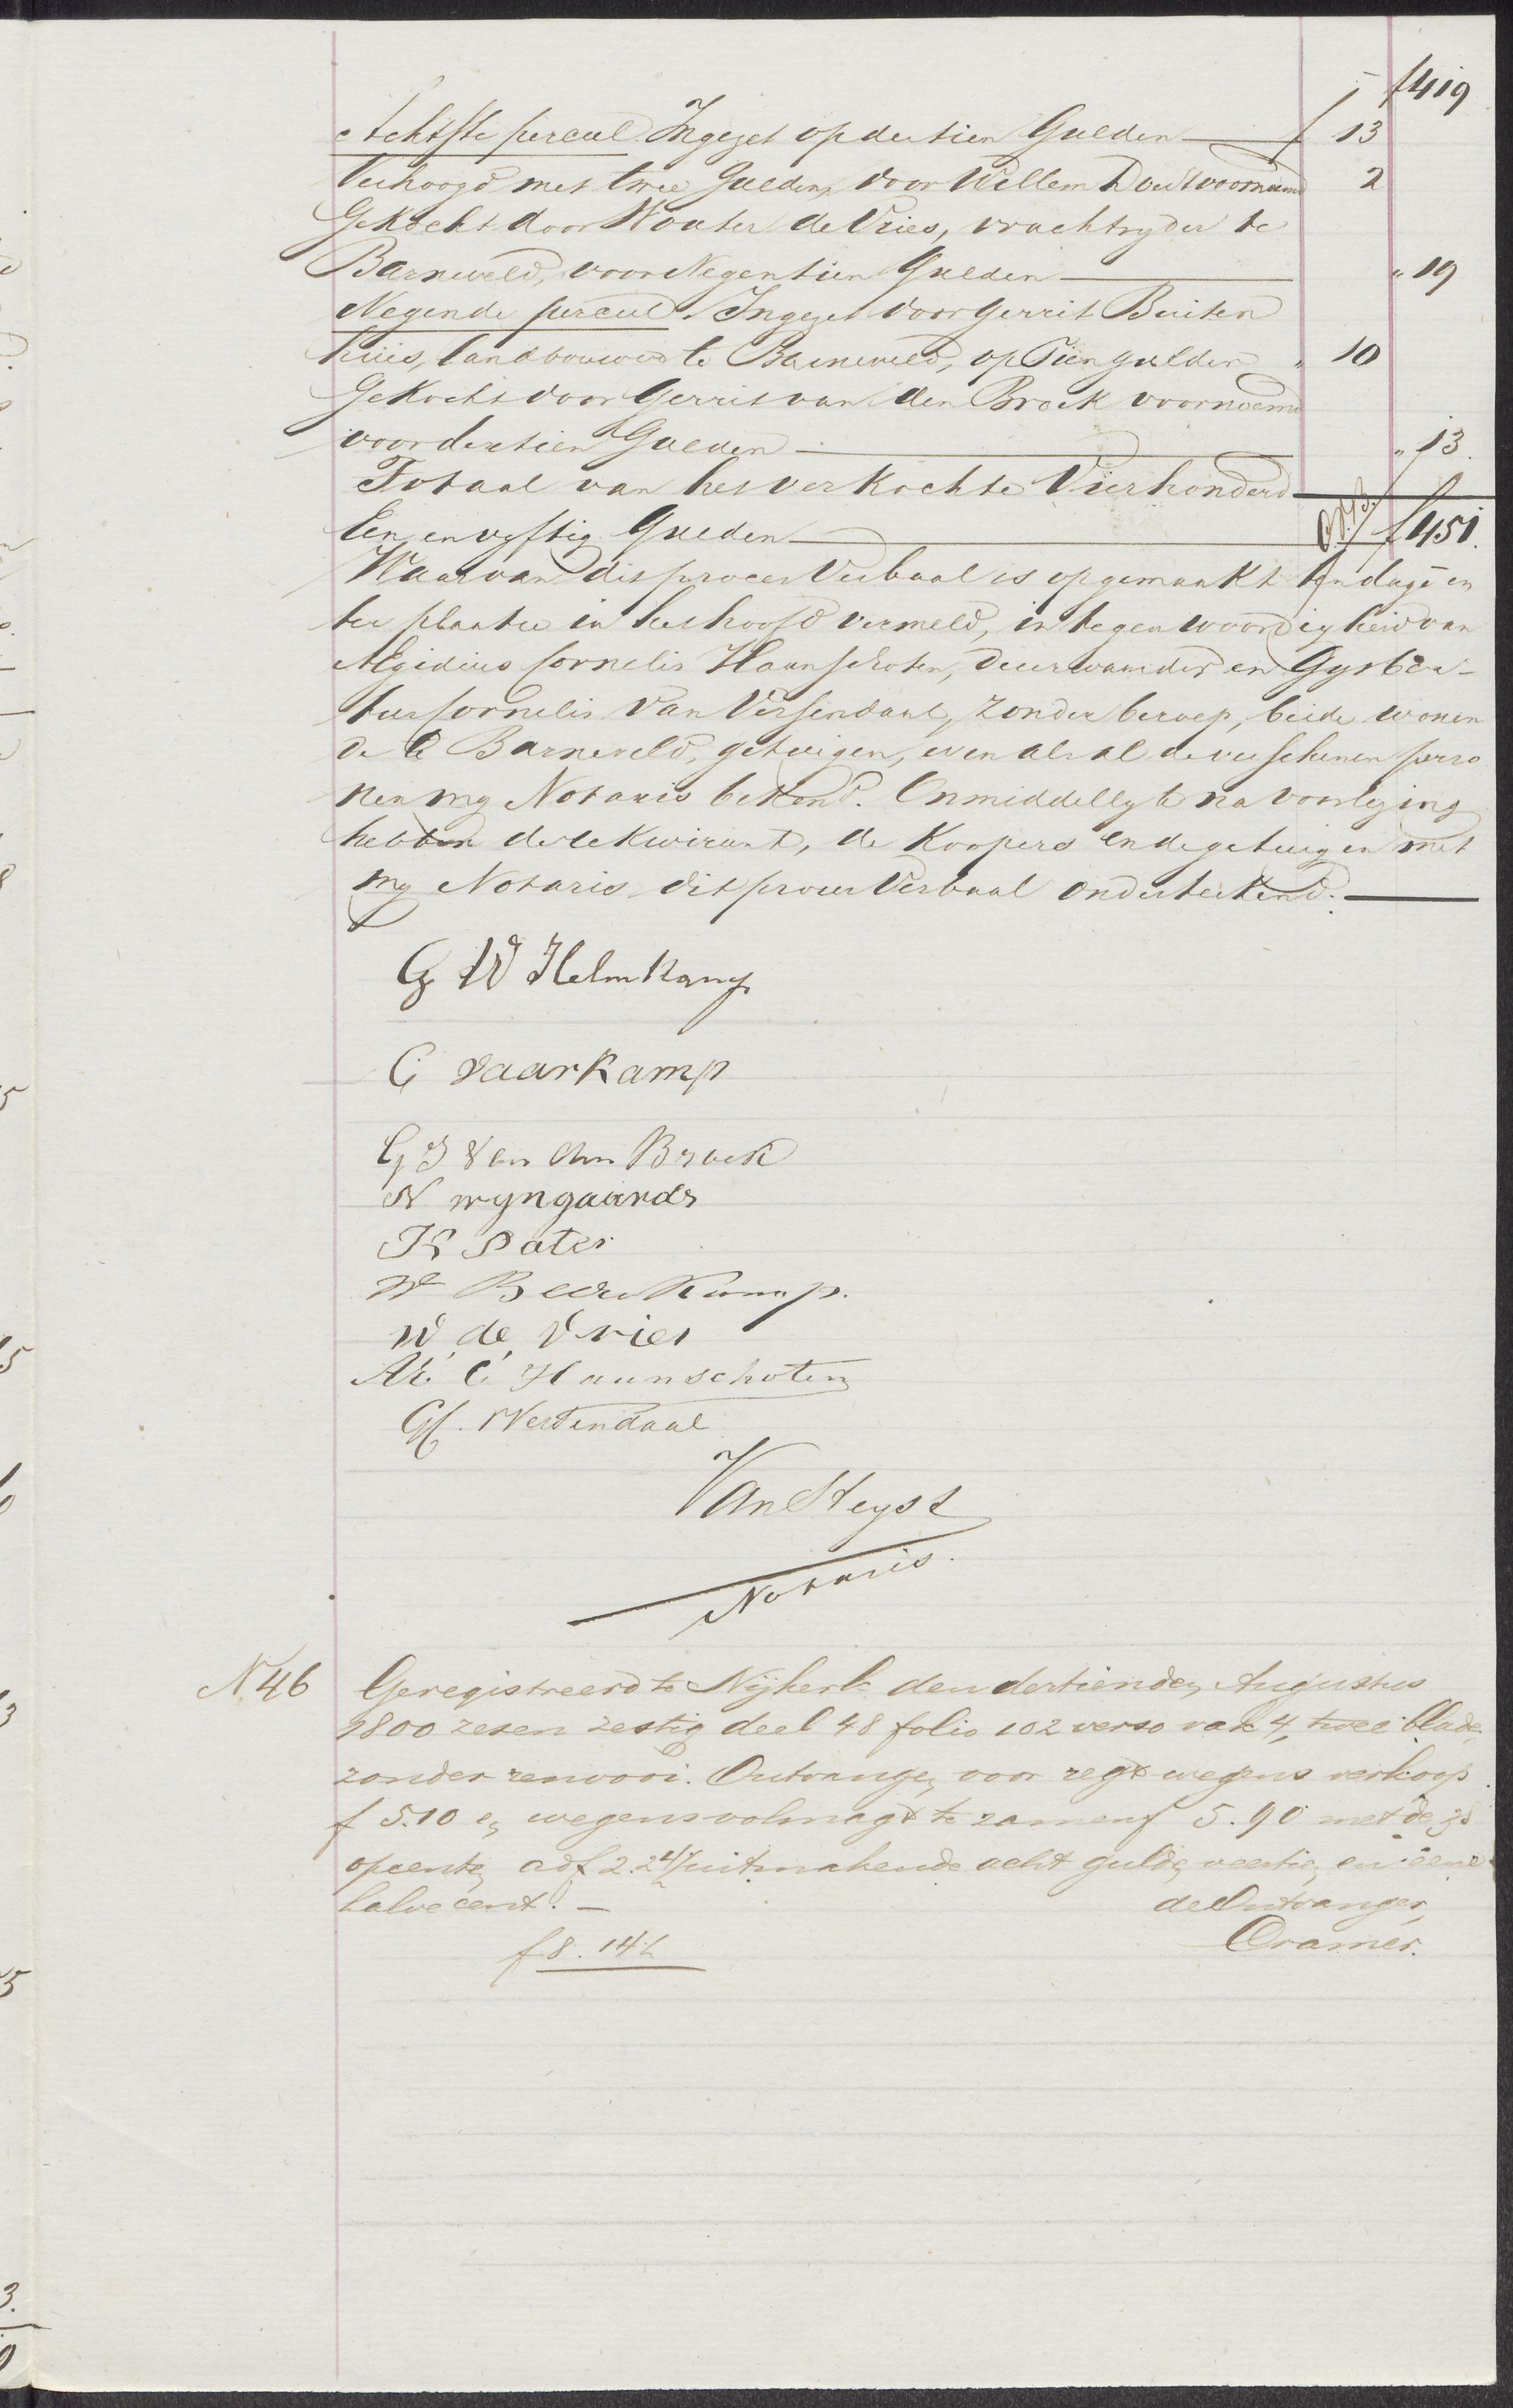 f 419
Achtste perceel. Ingezet op dertien Gulden — f 13
Verhoogd met twee Gulden, door Willem voornoemd 2
Gekocht door Wouter de Vries, vrachtryder te
Barneveld, voor Negentien Gulden — " 19
Negende perceel. Ingezet door Gerrit Buiten
huis, landbouwer te Barneveld, op Tien gulden " 10
Gekocht door Gerrit van den Broek voornoemd
voor dertien Gulden — " 13.
Totaal van het verkochte Vierhonderd
Een en vyftig Gulden — f 451.
Waarvan dit proces Verbaal is opgemaakt ten dage en
ter plaatse in het hoofd vermeld, in tegenwoordigheid van
Aegidius Cornelis Haanschoten, deurwaarder en Gysber-
tus Cornelis Van Versendaal, zonder beroep, beide wonen
de te Barneveld, getuigen, even als al de verschenen perso
nen my Notaris bekend. Onmiddellyk na voorlezing
hebben de rekwirant, de Koopers en de getuigen met
my Notaris dit proces Verbaal onderteekend. —
G W Helmkamp
G vaarkamp
G J Van den Broek
N wyngaards
K Pater
W. Beerekamp.
W. de Vries
AE. C. Haanschoten
GC. Versendaal
Van Steyst
Notaris.
N. 46 Geregistreerd te Nijkerk den dertienden Augustus
1800 zesen zestig deel 48 folio 102 verso vak 4, twee blade,
zonder renvooi. Ontvangen voor regt wegens verkoop
f 5.10 en wegens volmagt te zamen f 5.90 met de 38
opcenten ad f 2.24½ uitmakende acht gulden veertien en eene
halve cent. — de Ontvanger,
f 8.14½ Cramer.